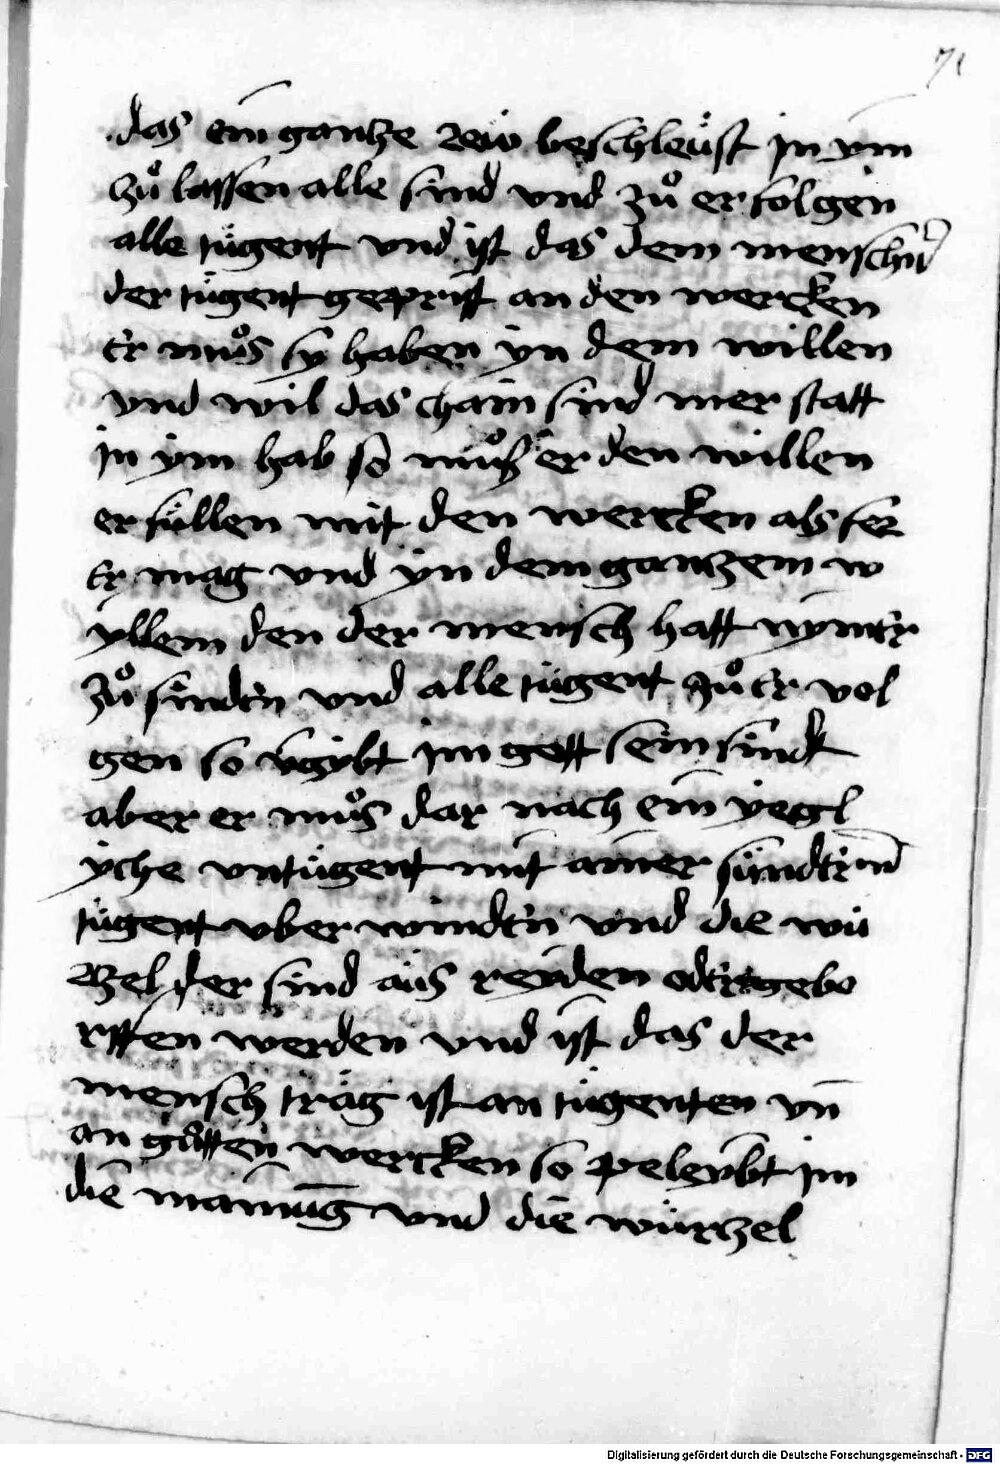 71
das ein gantze rew beschleüst in ym
zů lassen alle sind vnd zů erfolgen
alle tügent vnd ist das dem menschen
der tügent geprist an den wercken
er můs sy haben yn dem willen
vnd wil das chain sind mer statt
in ym hab so můß er den willen
erfüllen mit den wercken als fer
er mag vnd yn dem gantzem w
yllem den der mensch hatt nymer
zů sinden vnd alle tügent zů er vol
gen so vgybt im gott sein sindt
aber er můs dar nach ein yegl
yche vntügent mit ainer sündern
tügent vber winden vnd die wü
rzel der sind aüs reyden oder gebo
rffen werden vnd ist das der
mensch träg ist an tügenten vn̄
an gůtten wercken so peleybt im
die mainūg vnd die würtzel
Digitalisierung gefördert durch die Deutsche Forschungsgemeinschaft - DFG